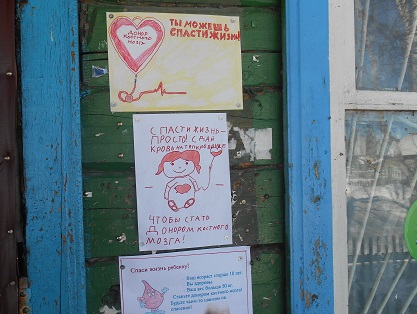 ТЫ МОЖЕШЬ
СПАСТИ ЖИЗНЬ!
ДОНОР
КОСТНОГО
МОЗГА
СПАСТИ ЖИЗНЬ –
ПРОСТО! СДАЙ
КРОВЬ НА ТИПИРОВАНИЕ
ЧТОБЫ СТАТЬ
ДОНОРОМ КОСТНОГО
МОЗГА!
Спаси жизнь ребенку!
Ваш возраст старше 18 лет.
Вы здоровы
Ваш вес больше 50 кг.
Станьте донором костного мозга!